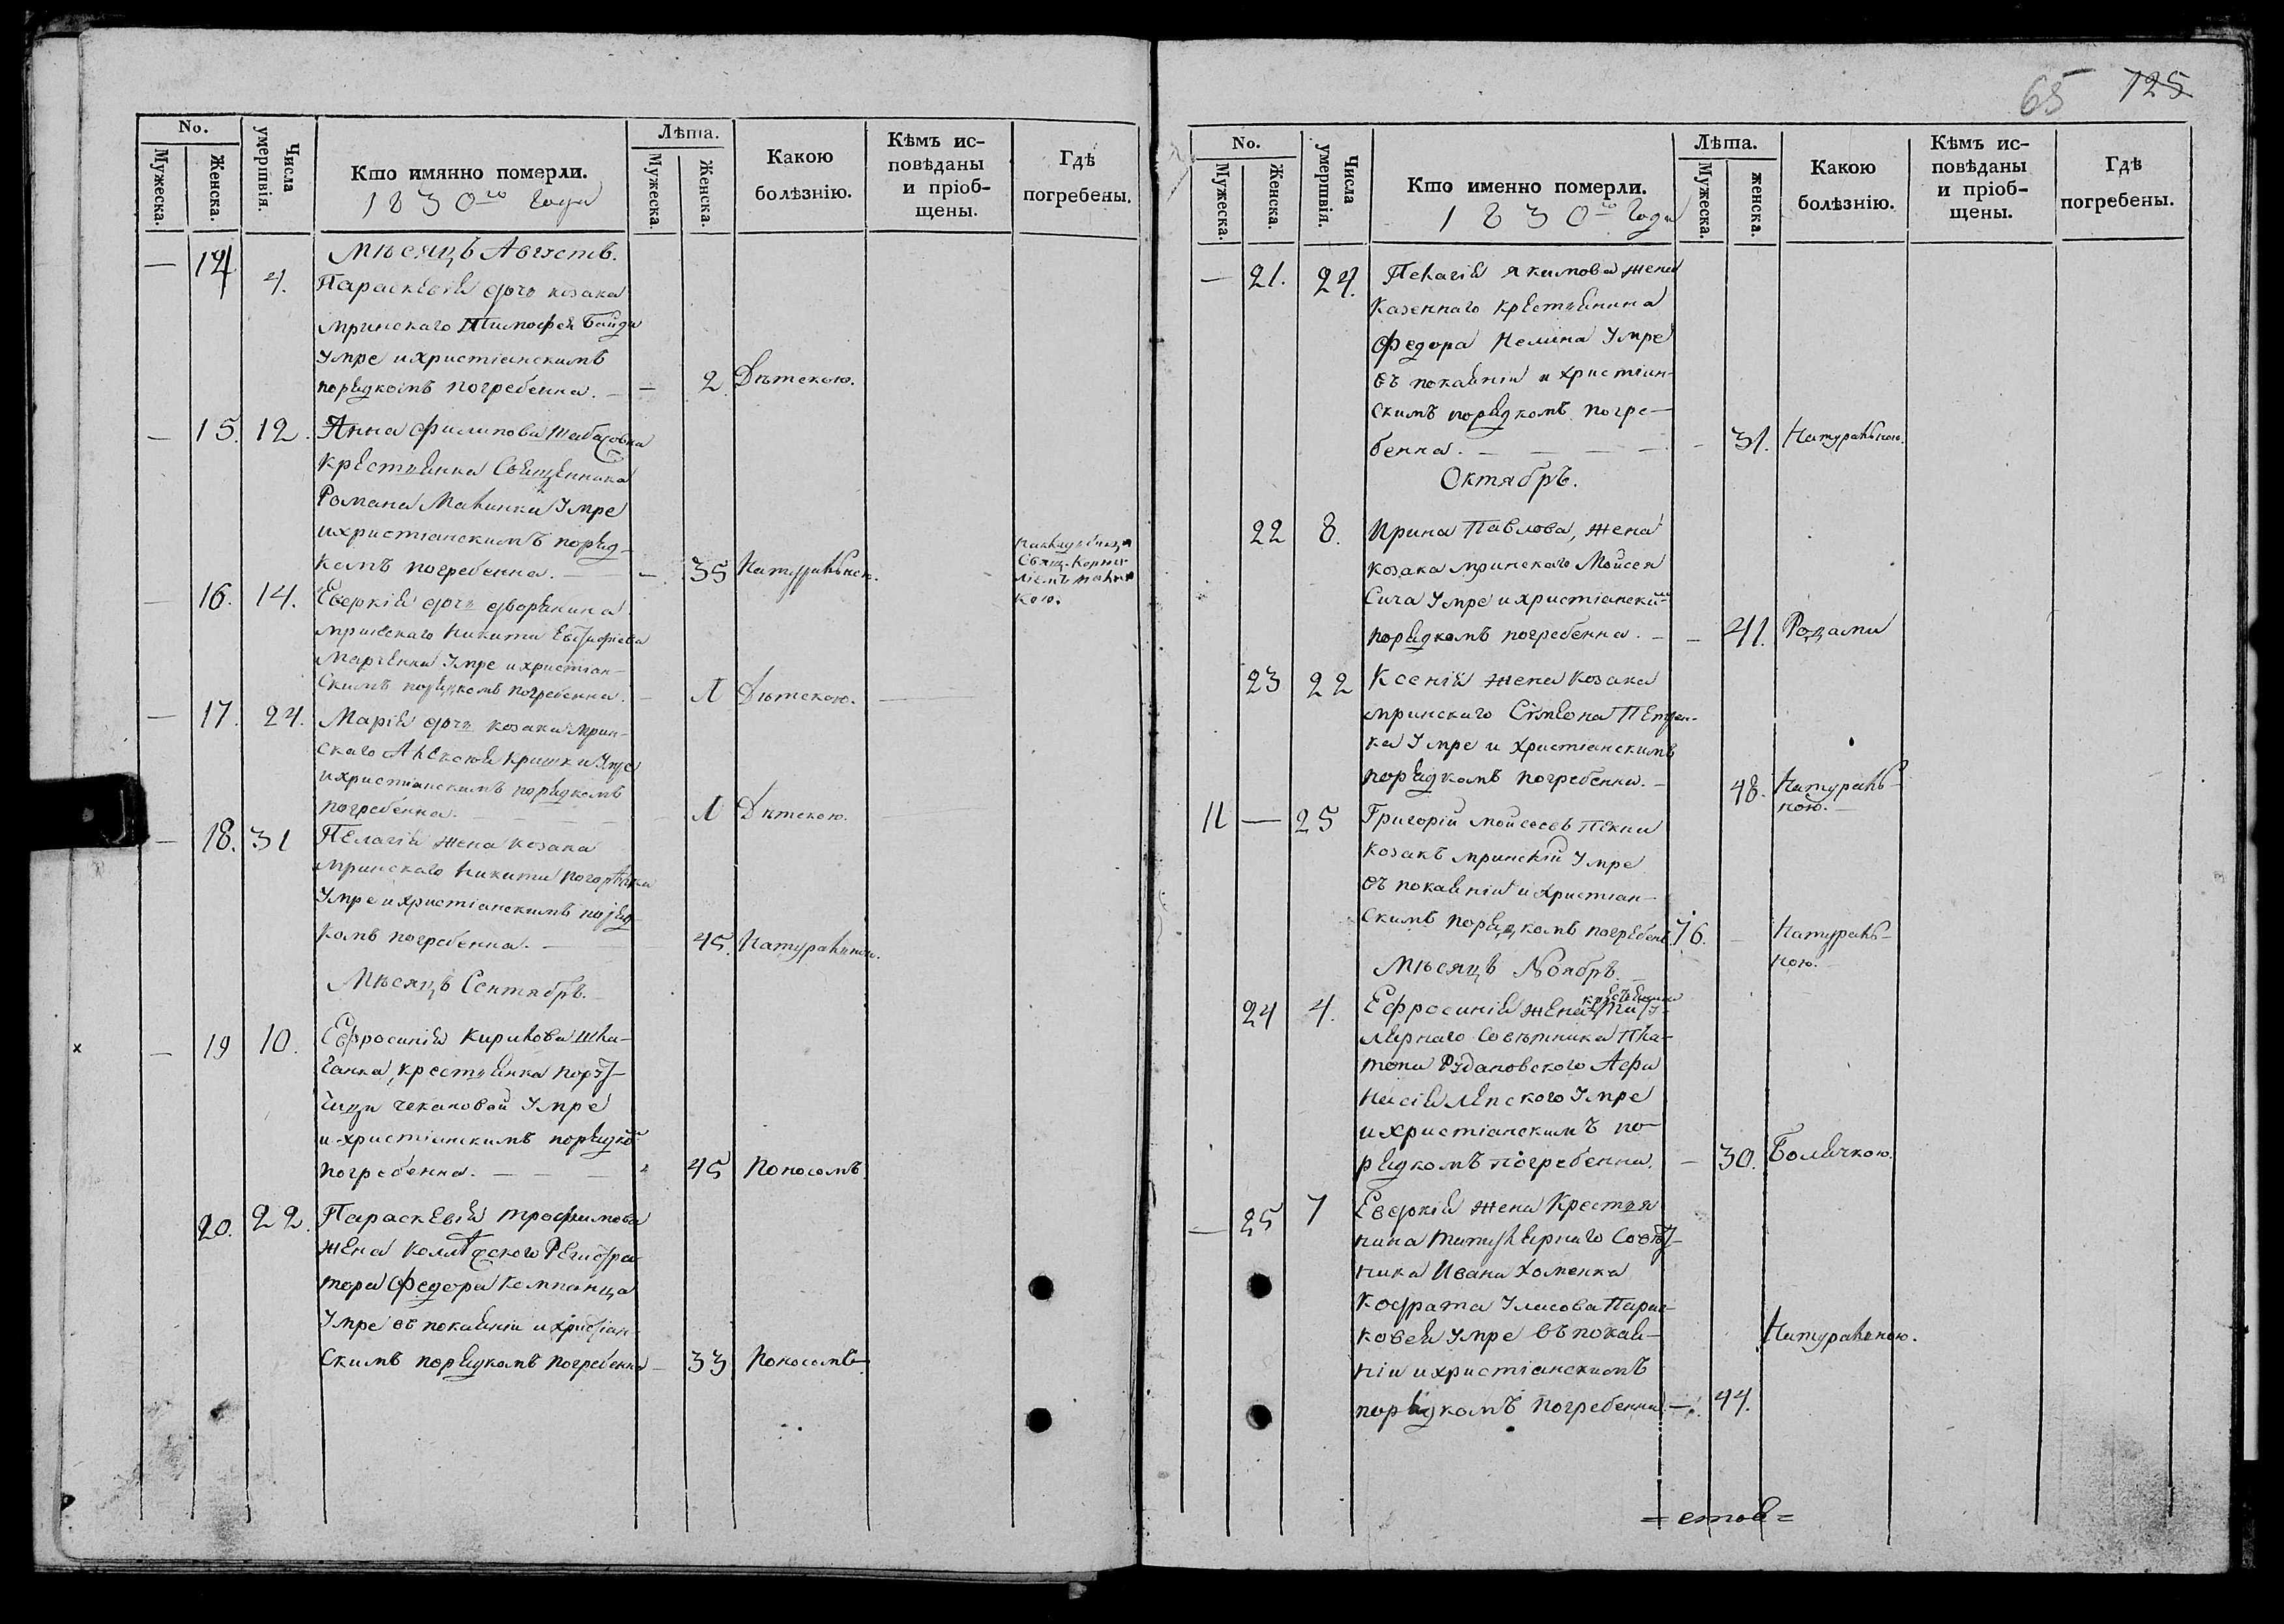 No.
Мужеска.
Женска.
Числа умертвія.
Кто имянно померли.
1830го года
Лѣта.
Мужеска.
Женска.
Какою болѣзнію.
Кѣмъ исповѣданы и пріобщены.
Гдѣ погребены.
Мѣсяцъ Августъ.
— 14 4. Параскевія дочь козака
мринскаго Тимофея Байди
Умре и христіанскимъ
порядкомъ погребенна. — — 2 Дѣтскою.
— 15. 12. Анна Филипова
Крестянка Священника
Романа Малинки Умре
и христіанскимъ поряд-
комъ погребенна. — — 35 Натуральною.
Свящ. Корни-
ліемъ
кою.
— 16. 14. Евдокія дочь дворянина
мринскаго Никити
Марченки Умре и христіан-
скимъ порядкомъ погребенна. — 1 Дѣтскою. —
— 17. 24. Марія дочь козака мрин-
скаго Алексея Кришки Умре
и христіанскимъ порядкомъ
погребенна. — 1 Дѣтскою.
— 18. 31 Пелагія жена козака
мринскаго Никити Погорѣлки
Умре и христіанскимъ поряд-
комъ погребенна. — 45. Натуральною.
Мѣсяцъ Сентябръ.
х — 19 10. Евфросинія Кирилова Шка-
крестянка пору-
чици Чекановой Умре
и христіанскимъ порядком
погребенна. — 45 Поносомъ
20. 22. Параскевія Трофимова
жена Колѣжского Регистра
тора Федора Компанца
Умре въ покаяніи и христіан-
скимъ порядкомъ погребенна — 33 Поносомъ
65 125
No.
Мужеска.
Женска.
Числа умертвія.
Кто именно померли.
1830го года
Лѣта.
Мужеска.
женска.
Какою болѣзнію.
Кѣмъ исповѣданы и пріобщены.
Гдѣ погребены.
— 21. 24. Пелагія Якимова жена
казеннаго крестянина
Федора Умре
въ покаяніи и христіан-
скимъ порядкомъ погре-
бенна. — — 31. Натуральною.
Октябръ.
22 8. Ирина Павлова, жена
козака мринскаго Мойсея
Сича Умре и христіанским
порядкомъ погребенна. — — 41. Родами
23 22 Ксенія жена козака
мринскаго Сѵмеона Петрен-
ка Умре и христіанскимъ
порядкомъ погребенна. — 48. Натураль-
ною. —
11 — 25 Григорій Мойсеевъ
козакъ мринскій Умре
въ покаяніи и христіан-
скимъ порядкомъ погребенъ. 76. — Натураль-
ною.
Мѣсяцъ Ноябръ.
24 4. Ефросинія жена крестянина Титу-
лярнаго Совѣтника Пла-
тона Рудановского Афа
насія Лепского Умре
и христіанскимъ по-
рядкомъ погребенна. — 30. Болячкою.
— 25 7 Евдокія жена Крестян
нина Титулярнаго Совѣт-
ника Ивана Хоменка
Кодрата Уласова
Умре въ покая-
ніи и христіанскимъ
порядкомъ погребенна — 44. Натуральною.